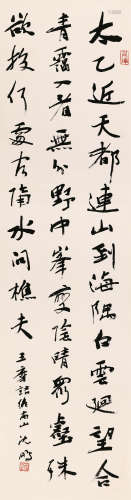 太乙近天都連山到海隅白雲迴望合
青靄入看無分野中峯變陰晴衆壑殊
欲投何處宿隔水問樵夫
王摩詰終南山 沈鵬